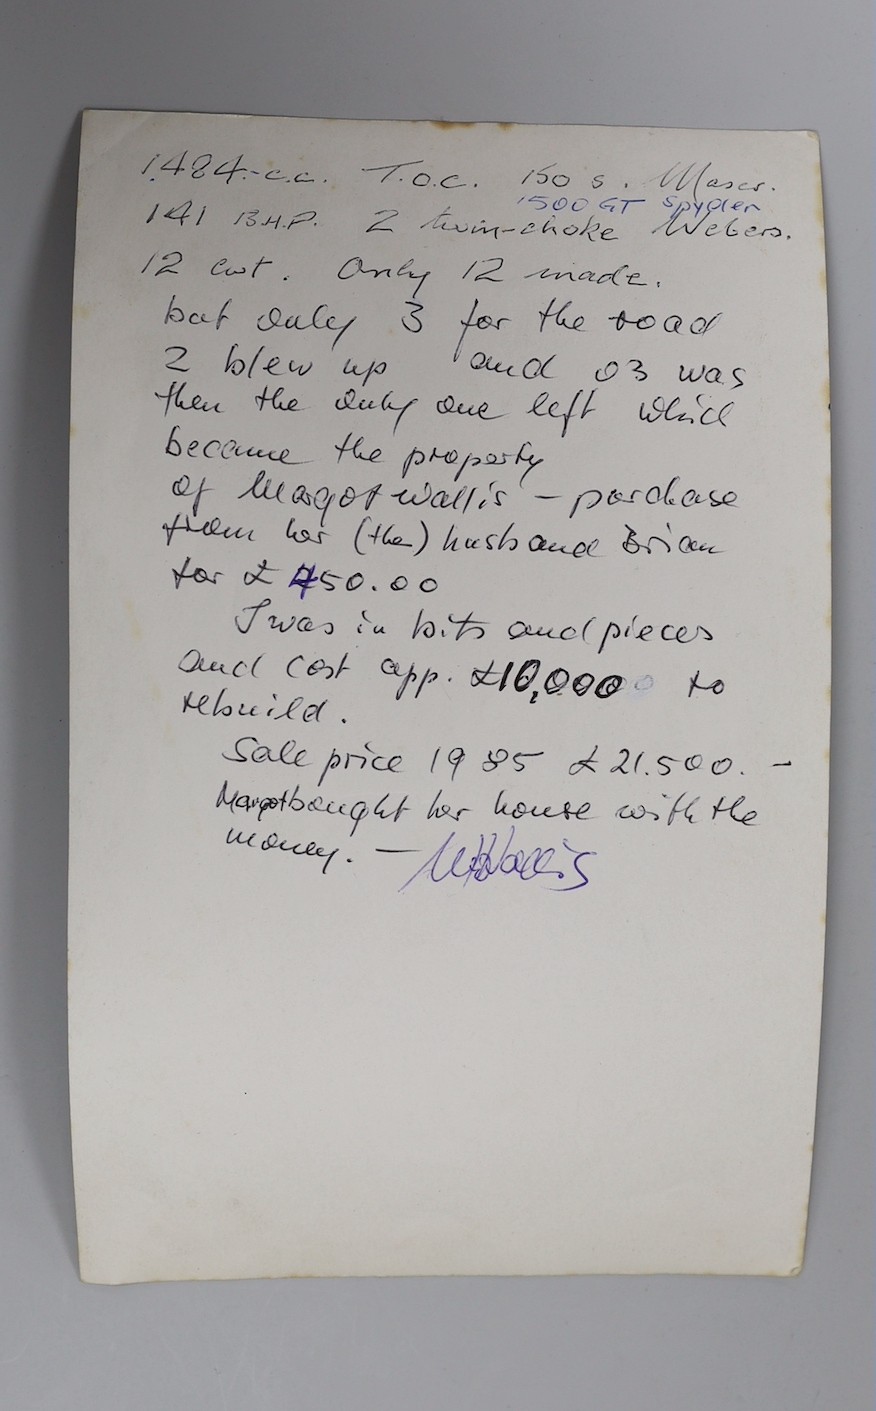 1484.-c.c. T.o.c. 150 s. Maser.
1500 GT Spyder
141 B.H.P. 2 twin-choke Webers.
12 cwt. Only 12 made.
but only 3 for the road
2 blew up and 03 was
then the only one left which
became the property
of Margot Wallis – purchase
from her (then) husband Brian
for £ 750.00
I was in bits and pieces
and cost app. £10,000 to
rebuild.
Sale price 1985 £ 21.500. –
Margot bought her house with the
money. – MWallis